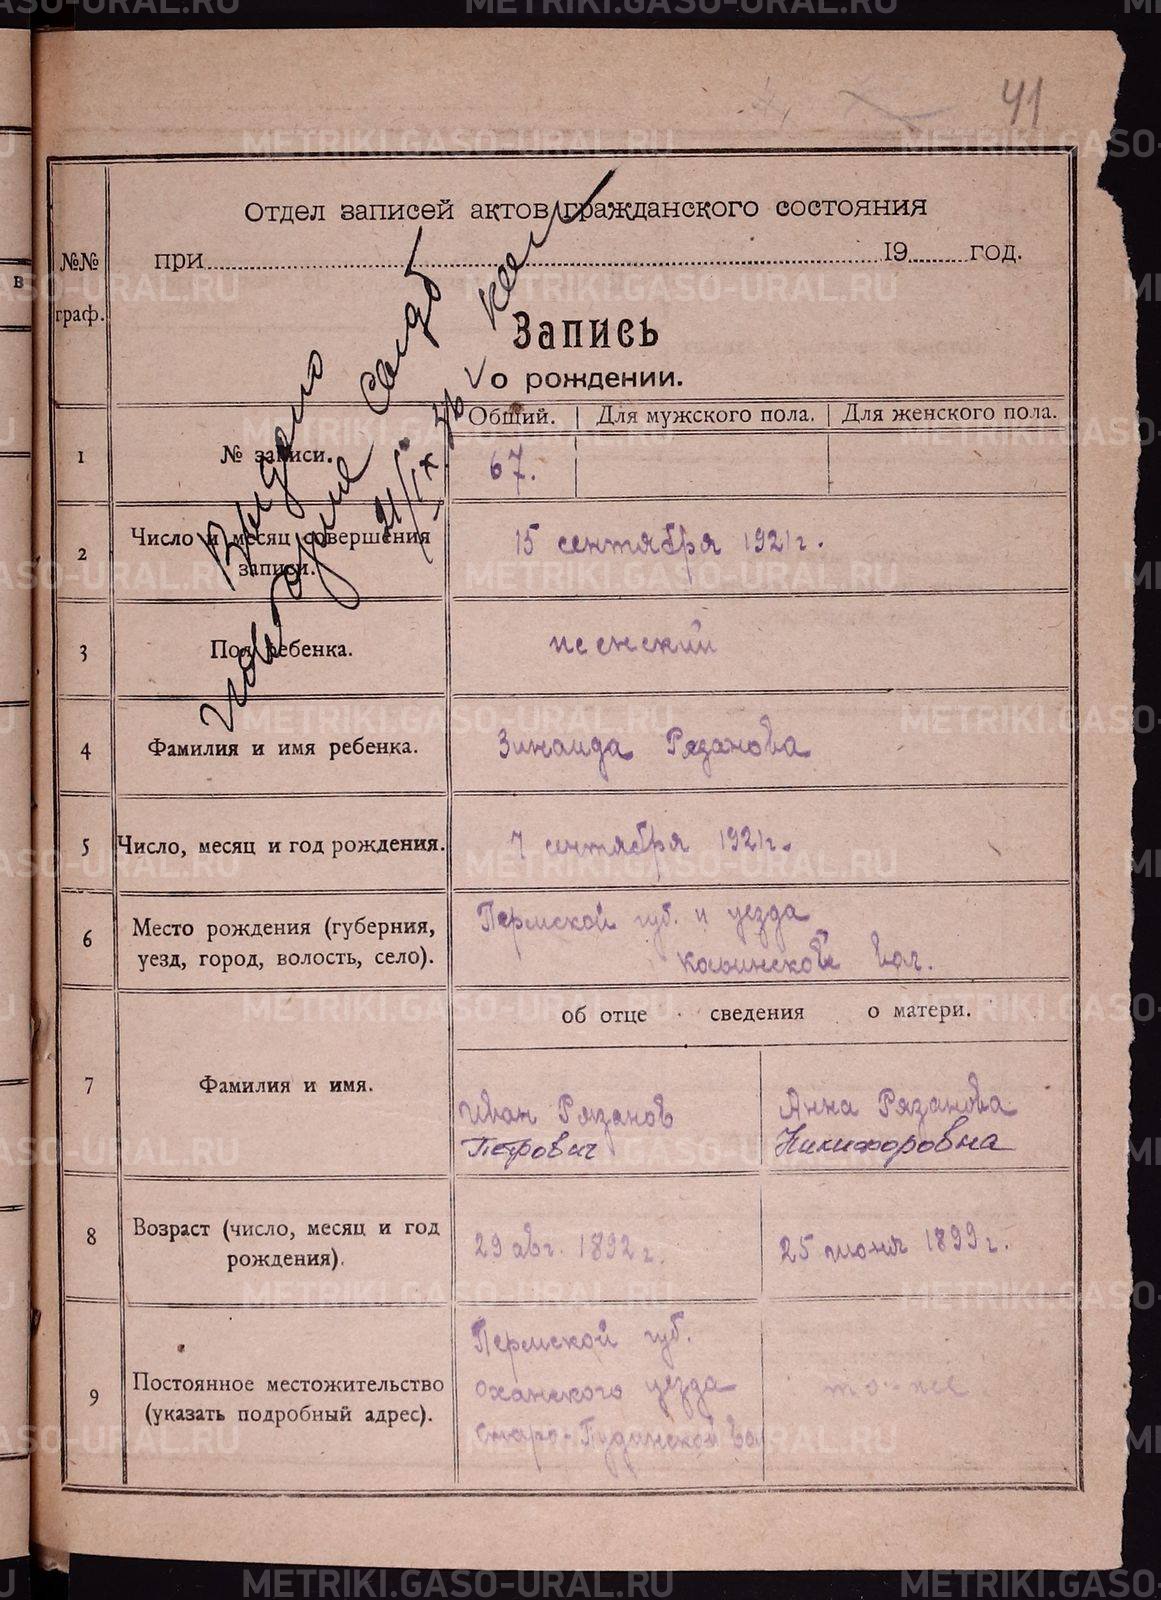 41
Отдел записей актов гражданского состояния
при 19 год.
№№ граф.
Запись
о рождении.
Выдано
повторное свид
21/IX
Общий. Для мужского пола. Для женского пола.
1 № записи. 67.
2 Число и месяц совершения
записи. 15 сентября 1921 г.
3 Пол ребенка. женский
4 Фамилия и имя ребенка. Зинаида Рязанова
5 Число, месяц и год рождения. 7 сентября 1921 г.
6 Место рождения (губерния,
уезд, город, волость, село). Пермской губ. и уезда
вол.
об отце сведения о матери.
7 Фамилия и имя.
Иван Рязанов Анна Рязанова
Петрович Никифоровна
8 Возраст (число, месяц и год
рождения). 29 авг. 1892 г. 25 июня 1899 г.
9 Постоянное местожительство
(указать подробный адрес).
Пермской губ.
Оханского уезда то-же
Старо-
METRIKI.GASO-URAL.RU